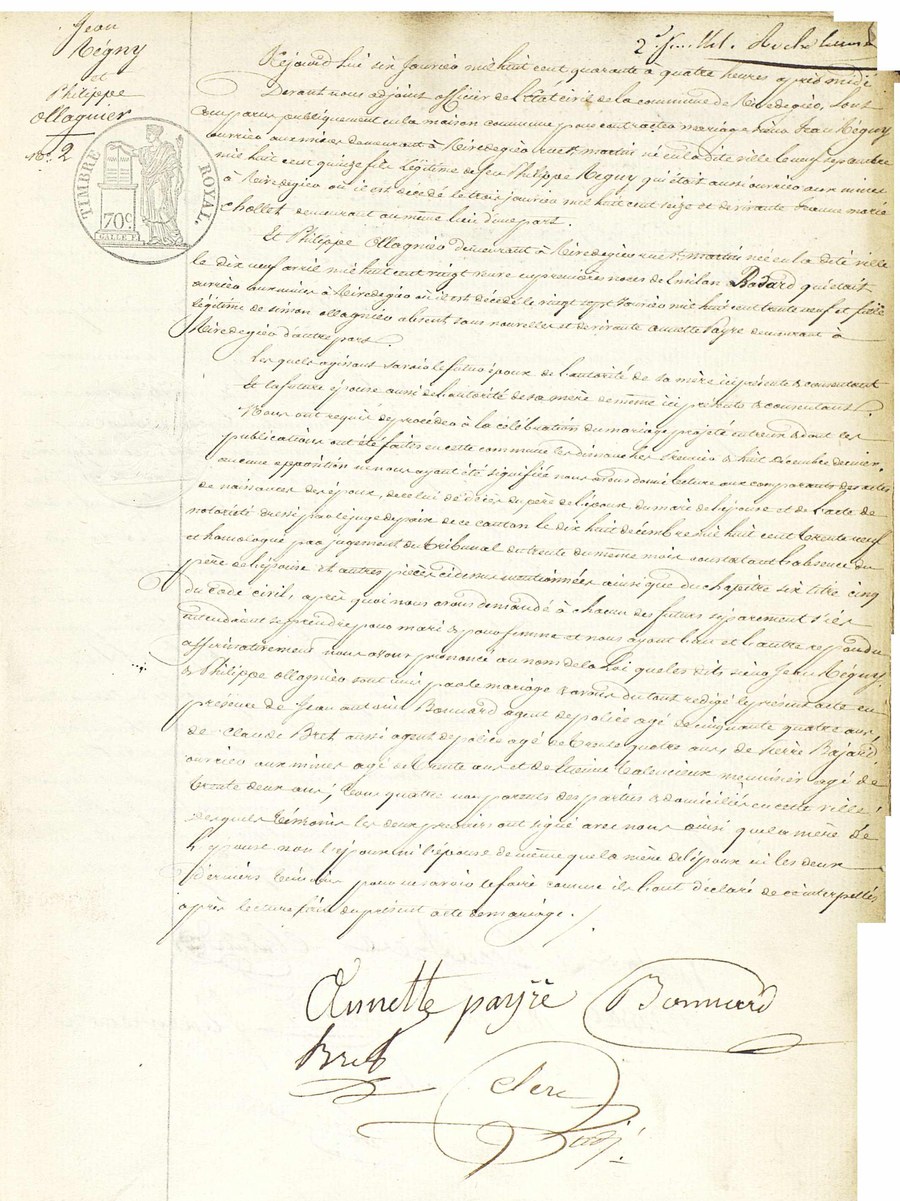 Jean
Régny
et
Philippe
Ollagnier
No. 2
TIMBRE ROYAL.
70c.
2e f
Cejourd'hui six Janvier mil huit cent quarante à quatre heures après midi
Devant nous adjoint officier de l'Etat civil de la commune de Rivedegier, sont
comparus publiquement en la maison commune pour contracter mariage Jean Régny
ouvrier aux mines demeurant à Rivedegier rue St martin né en la dite ville le neuf septembre
mil huit cent quinze fils légitime de feu Philippe Régny qui était aussi ouvrier aux mines
à Rivedegier où il est décédé le trois janvier mil huit cent seize et de vivante Jeanne marie
Chollet demeurant au même lieu d'une part.
Et Philippe Ollagnier demeurant à Rivedegier rue St martin née en la dite ville
le dix neuf avril mil huit cent vingt veuve en premières noces de Badard qui était
ouvrier aux mines à Rivedegier où il est décédé le vingt sept Janvier mil huit cent trente neuf et fille
légitime de simon Ollagnier absent sans nouvelles et de vivante annette Payre demeurant à
Rivedegier d'autre part.
Lesquels agissant savoir le futur époux de l'autorité de sa mère ici présente & consentante
Et la future épouse aussi de l'autorité de sa mère de même ici présente & consentante.
Nous ont requis de procéder à la célébration du mariage projeté entr'eux & dont les
publications ont été faites en cette commune les dimanches premier & huit Décembre dernier,
aucune opposition ne nous ayant été signifiée nous avons donné lecture aux comparants des actes
de naissances des époux, de celui de décès du père de l'époux, du mari de l'épouse et de l'acte de
notoriété dressé par le juge de paix de ce canton le dix huit décembre mil huit cent trente neuf
et homologué par jugement du tribunal du trente du même mois constatant l'absence du
père de l'épouse et autres pièces ci dessus mentionnées ainsi que du chapitre six titre cinq
du Code civil, après quoi nous avons demandé à chacun des futurs séparément s'ils
entendaient se prendre pour mari & pour femme et nous ayant l'un et l'autre répondu
affirmativement nous avons prononcé au nom de la Loi que les dits Jean Régny
& Philippe Ollagnier sont unis par le mariage & avons du tout rédigé le présent acte en
présence de Jean antoine Bonnard agent de police agé de cinquante quatre ans
de Claude Bret aussi agent de police agé de trente quatre ans de Pierre Bajard
ouvrier aux mines agé de trente ans et de menuisier agé de
trente deux ans; tous quatre non parents des parties & domiciliés en cette ville;
desquels témoins les deux premiers ont signé avec nous ainsi que la mère de
l'épouse non l'époux ni l'épouse de même que la mère de l'époux ni les deux
derniers témoins pour ne savoir le faire comme ils l'ont déclaré de ce interpellés
après lecture faite du présent acte de mariage.
Annette payre Bonnard
Bret
Clerc
adj.